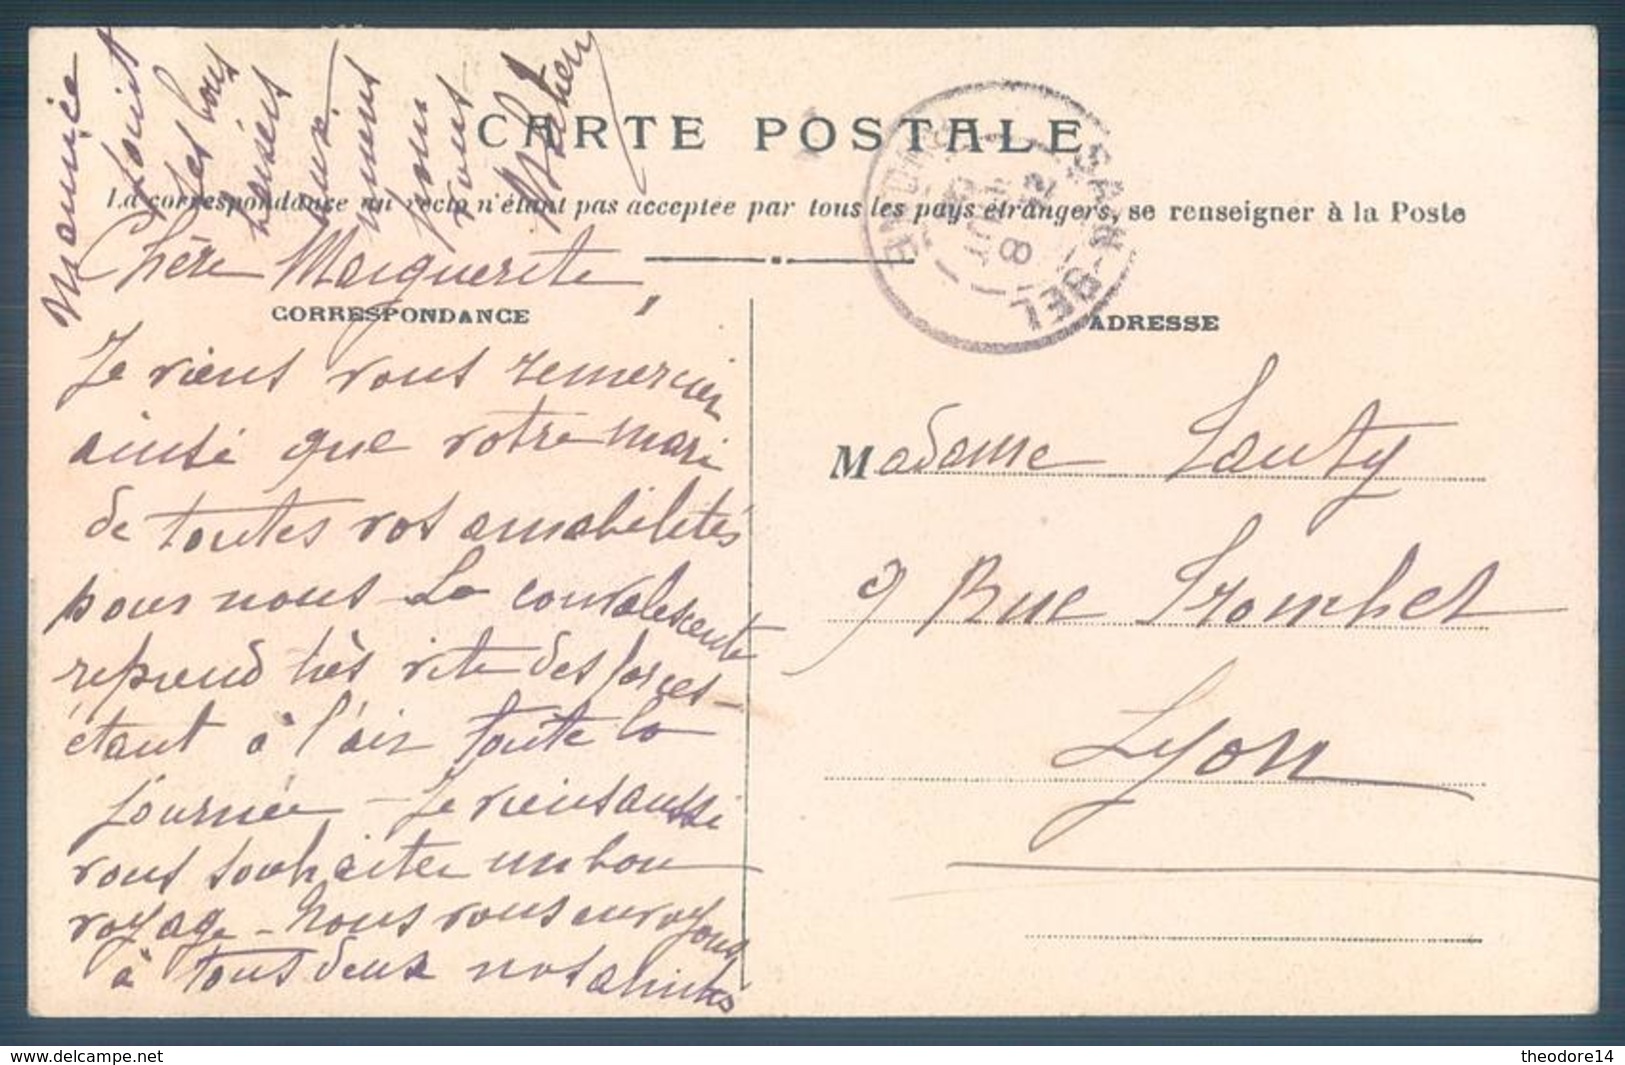 CARTE POSTALE
La correspondance au recto n'étant pas acceptée par tous les pays étrangers, se renseigner à la Poste
CORRESPONDANCE
ADRESSE
Chère Marguerite,
Je viens vous remercier
ainsi que votre mari
de toutes vos amabilités
pour nous La convalescente
reprend très vite des forces
étant à l'air toute la
journée - Je viens aussi
vous souhaiter un bon
voyage - Nous vous envoyons
à tous deux nos amitiés
Maurice
joint
ses bons
baisers
aux
miens
pour
vous
Madame Lauty
9 Rue Tronchet
Lyon
SAIN-BEL
RHONE
8
delcampe.net
theodore14